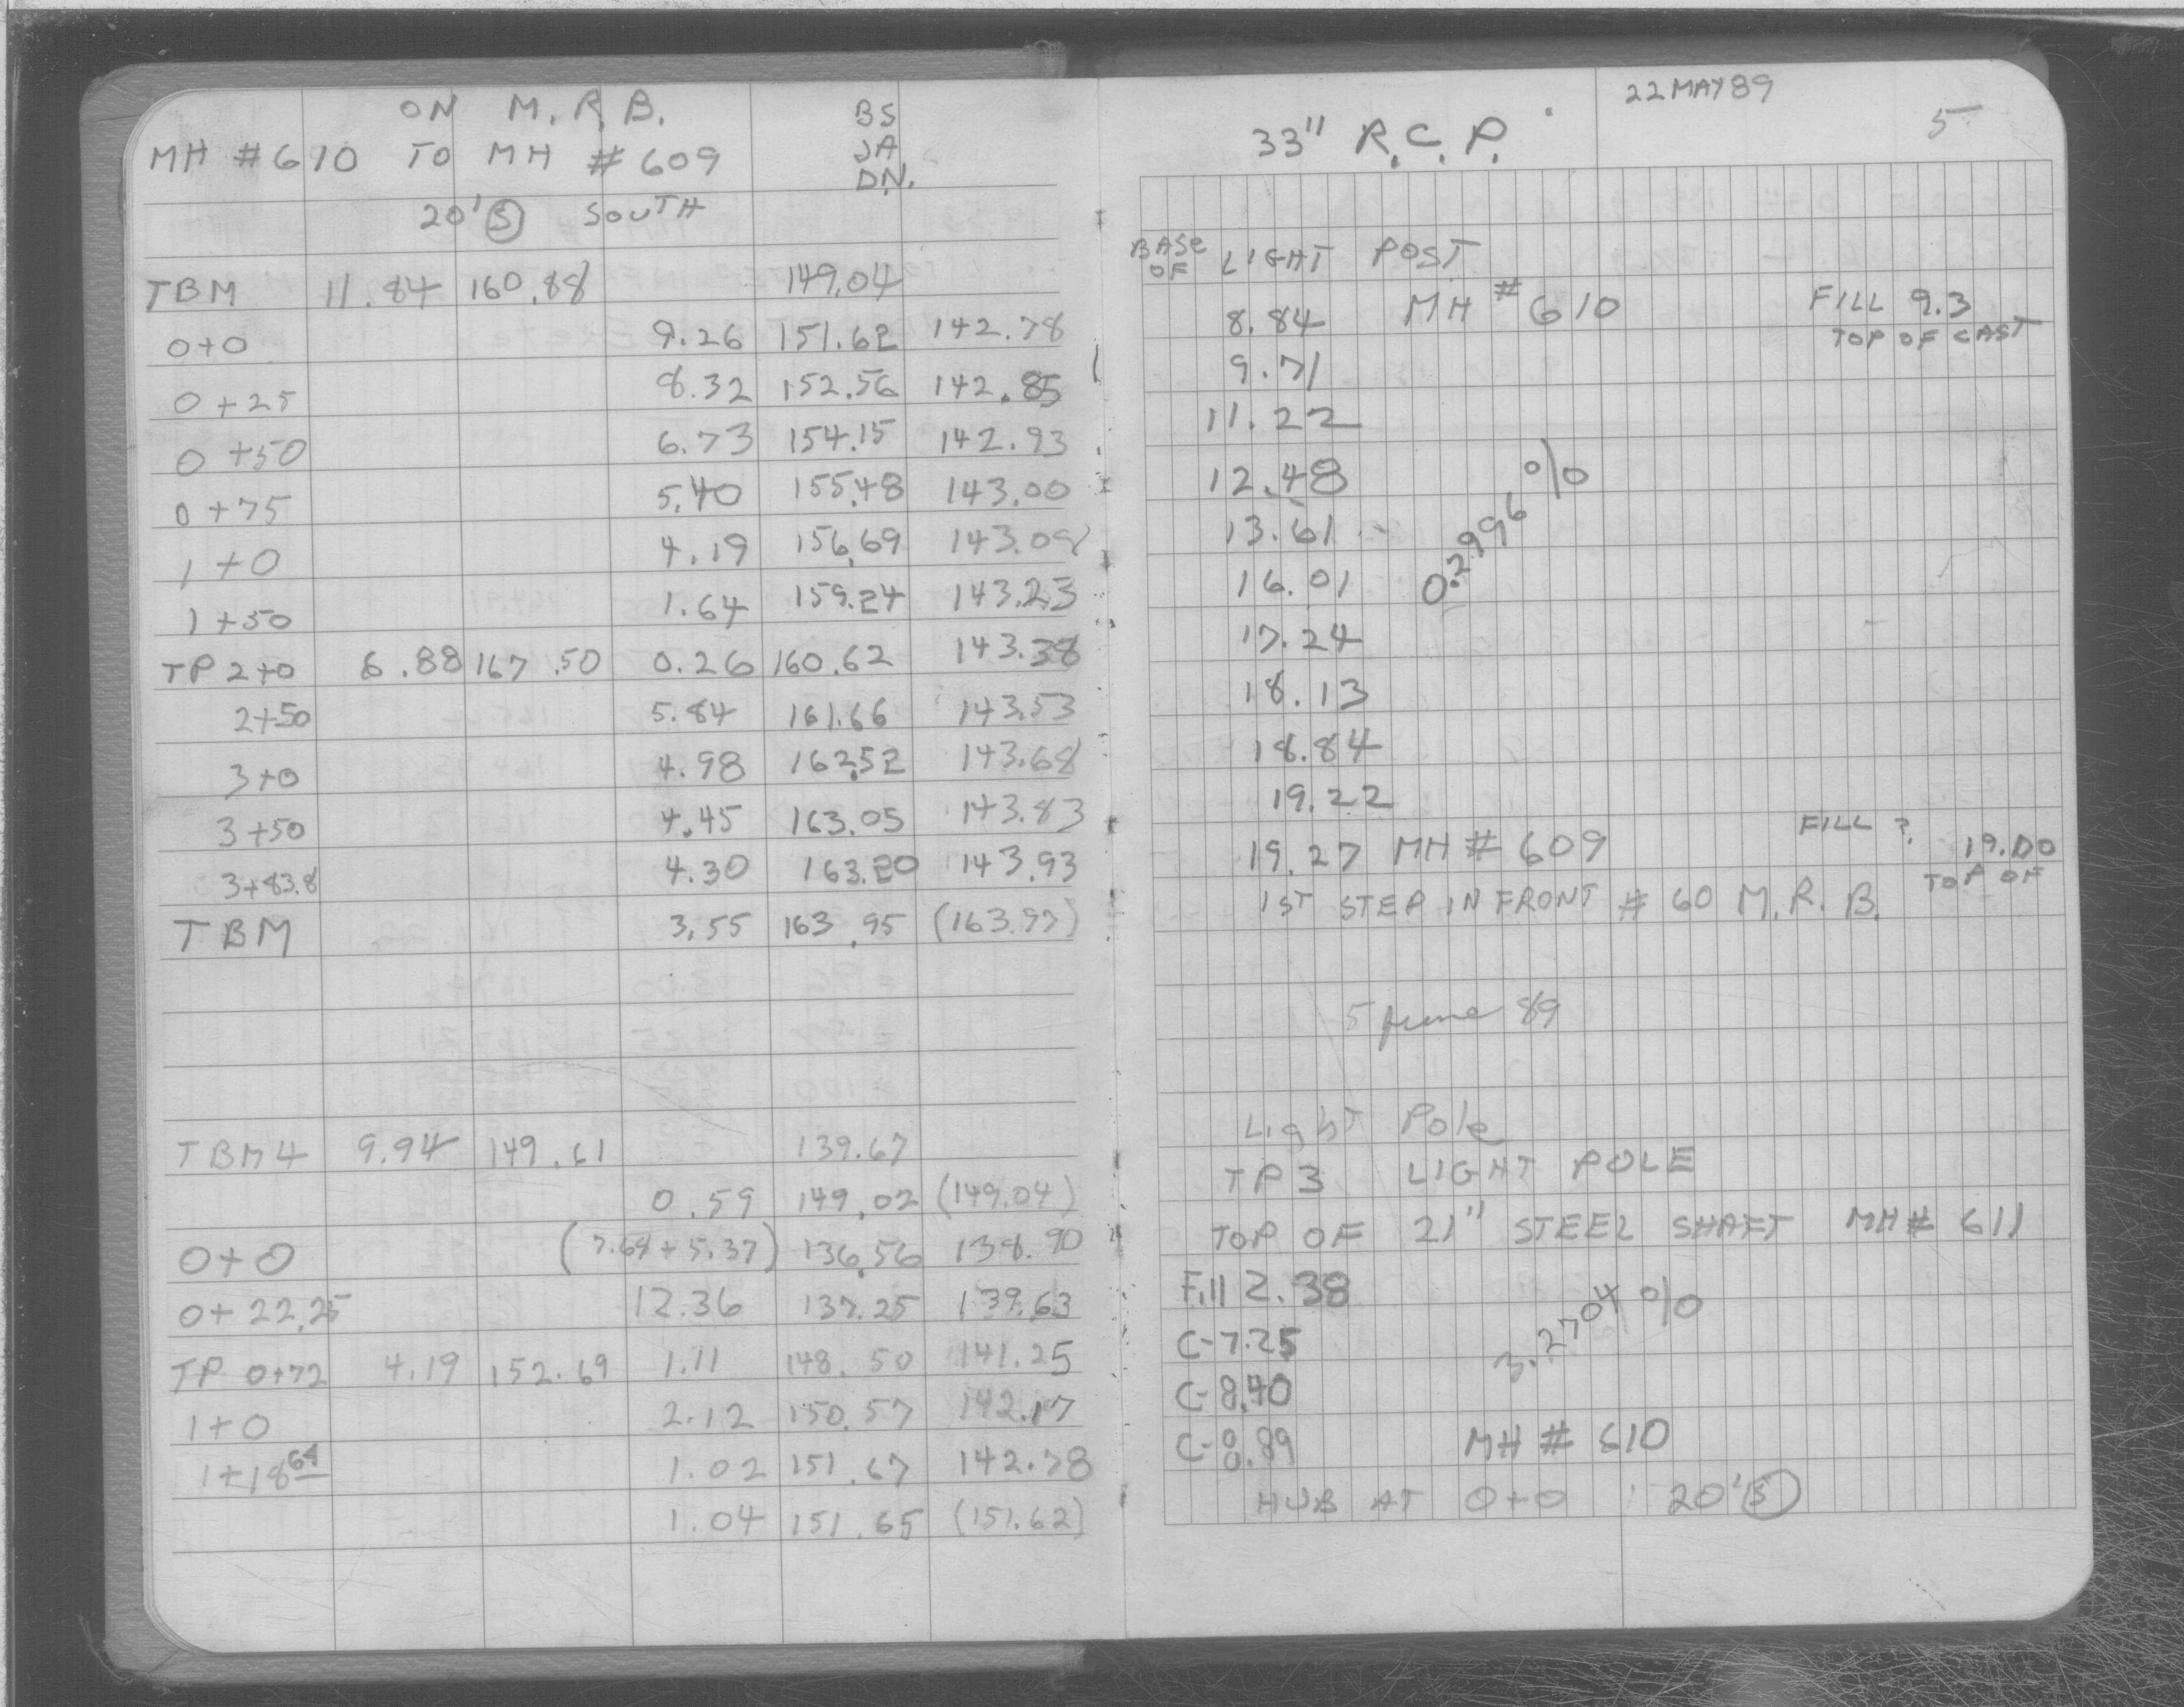 ON M.R.B.
MH #610 TO MH #609
BS
JA
DN.
20' S SOUTH
TBM 11.84 160.88 149.04
0+0 9.26 151.62 142.78
0+25 8.32 152.56 142.85
0+50 6.73 154.15 142.93
0+75 5.40 155.48 143.00
1+0 4.19 156.69 143.08
1+50 1.64 159.24 143.23
TP 2+0 6.88 167.50 0.26 160.62 143.38
2+50 5.84 161.66 143.53
3+0 4.98 162.52 143.68
3+50 4.45 163.05 143.83
3+83.8 4.30 163.20 143.93
TBM 3.55 163.95 (163.97)
TBM4 9.94 149.61 139.67
0.59 149.02 (149.04)
0+0 (7.68+5.37) 136.56 138.90
0+22.25 12.36 137.25 139.63
TP 0+72 4.19 152.69 1.11 148.50 141.25
1+0 2.12 150.57 142.17
1+18 64 1.02 151.67 142.78
1.04 151.65 (151.62)
22 MAY 89
5
33" R.C.P.
BASE OF LIGHT POST
8.84 MH # 610 FILL 9.3
TOP OF CAST
9.71
11.22
12.48
13.61
0.2996 %
16.01
17.24
18.13
18.84
19.22
19.27 MH # 609 FILL ? 19.00
TOP OF
1ST STEP IN FRONT # 60 M.R.B.
5 June 89
Light Pole
TP3 LIGHT POLE
TOP OF 21" STEEL SHAFT MH# 611
Fill 2.38
3.2704 %
C-7.25
C-8.40
C-8.89 MH # 610
HUB AT 0+0 20' S